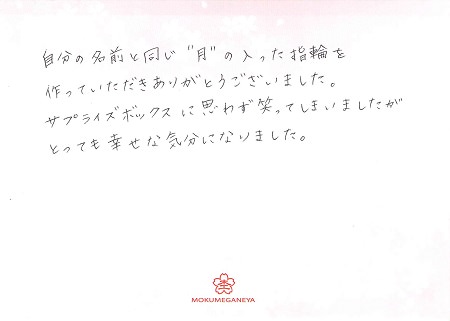 自分の名前と同じ"月"の入った指輪を
作っていただきありがとうございました。
サプライズボックスに思わず笑ってしまいましたが
とっても幸せな気分になりました。
MOKUMEGANEYA